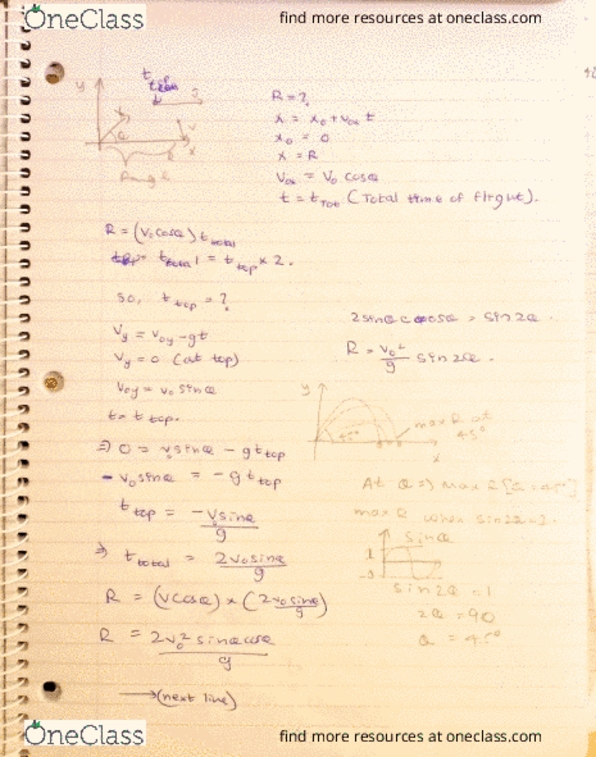 OneClass
find more resources at oneclass.com
y
t
g
v
θ
x
Range
R = ?
x = x₀ + v₀ₓ t
x₀ = 0
x = R
V₀ₓ = V₀ cosθ
t = t_Tot (Total time of flight).
R = (V₀cosθ) t_total
t_total = t_top × 2.
so, t_top = ?
V_y = V_oy - gt
V_y = 0 (at top)
V_oy = v₀ sinθ
t = t_top.
⇒ 0 = v₀sinθ - g t_top
- v₀sinθ = - g t_top
t_top = -V₀sinθ / g
⇒ t_total = 2v₀sinθ / g
R = (vcosθ) × (2v₀sinθ / g)
R = 2v₀² sinθcosθ / g
→ (next line)
2sinθcosθ = sin2θ.
R = v₀² / g sin2θ.
y
45°
max R at
45°
x
At θ ⇒ max R [θ = 45°]
max R when sin2θ = 1.
sinθ
1
sin2θ = 1
2θ = 90
θ = 45°
OneClass
find more resources at oneclass.com